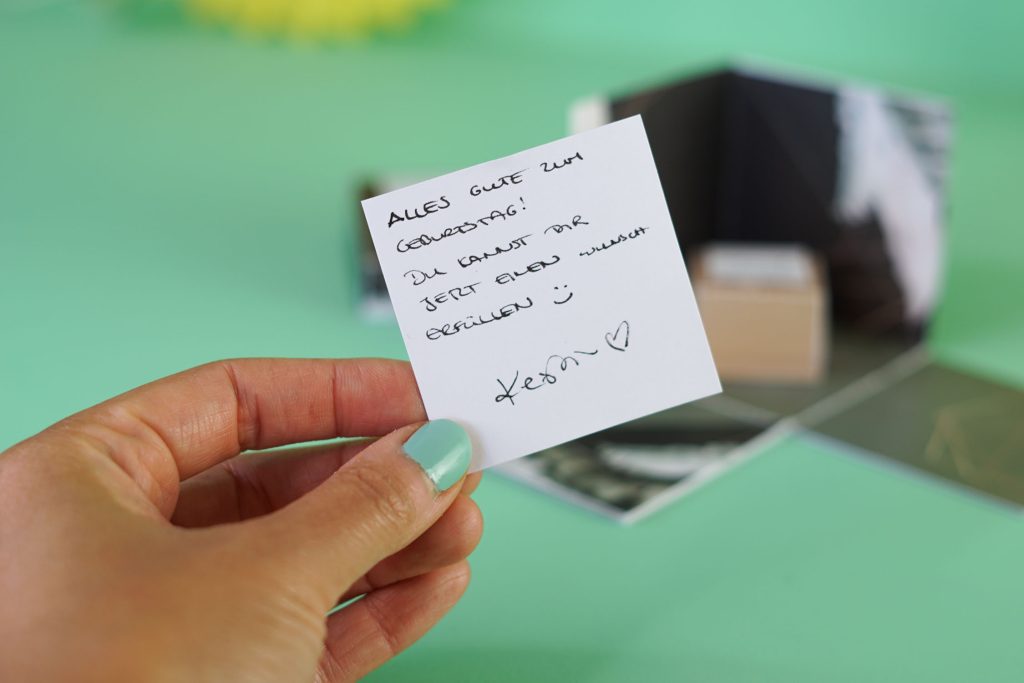 ALLES GUTE ZUM
GEBURTSTAG!
DU KANNST DIR
JETZT EINEN WUNSCH
ERFÜLLEN :)
Kerstin ♡